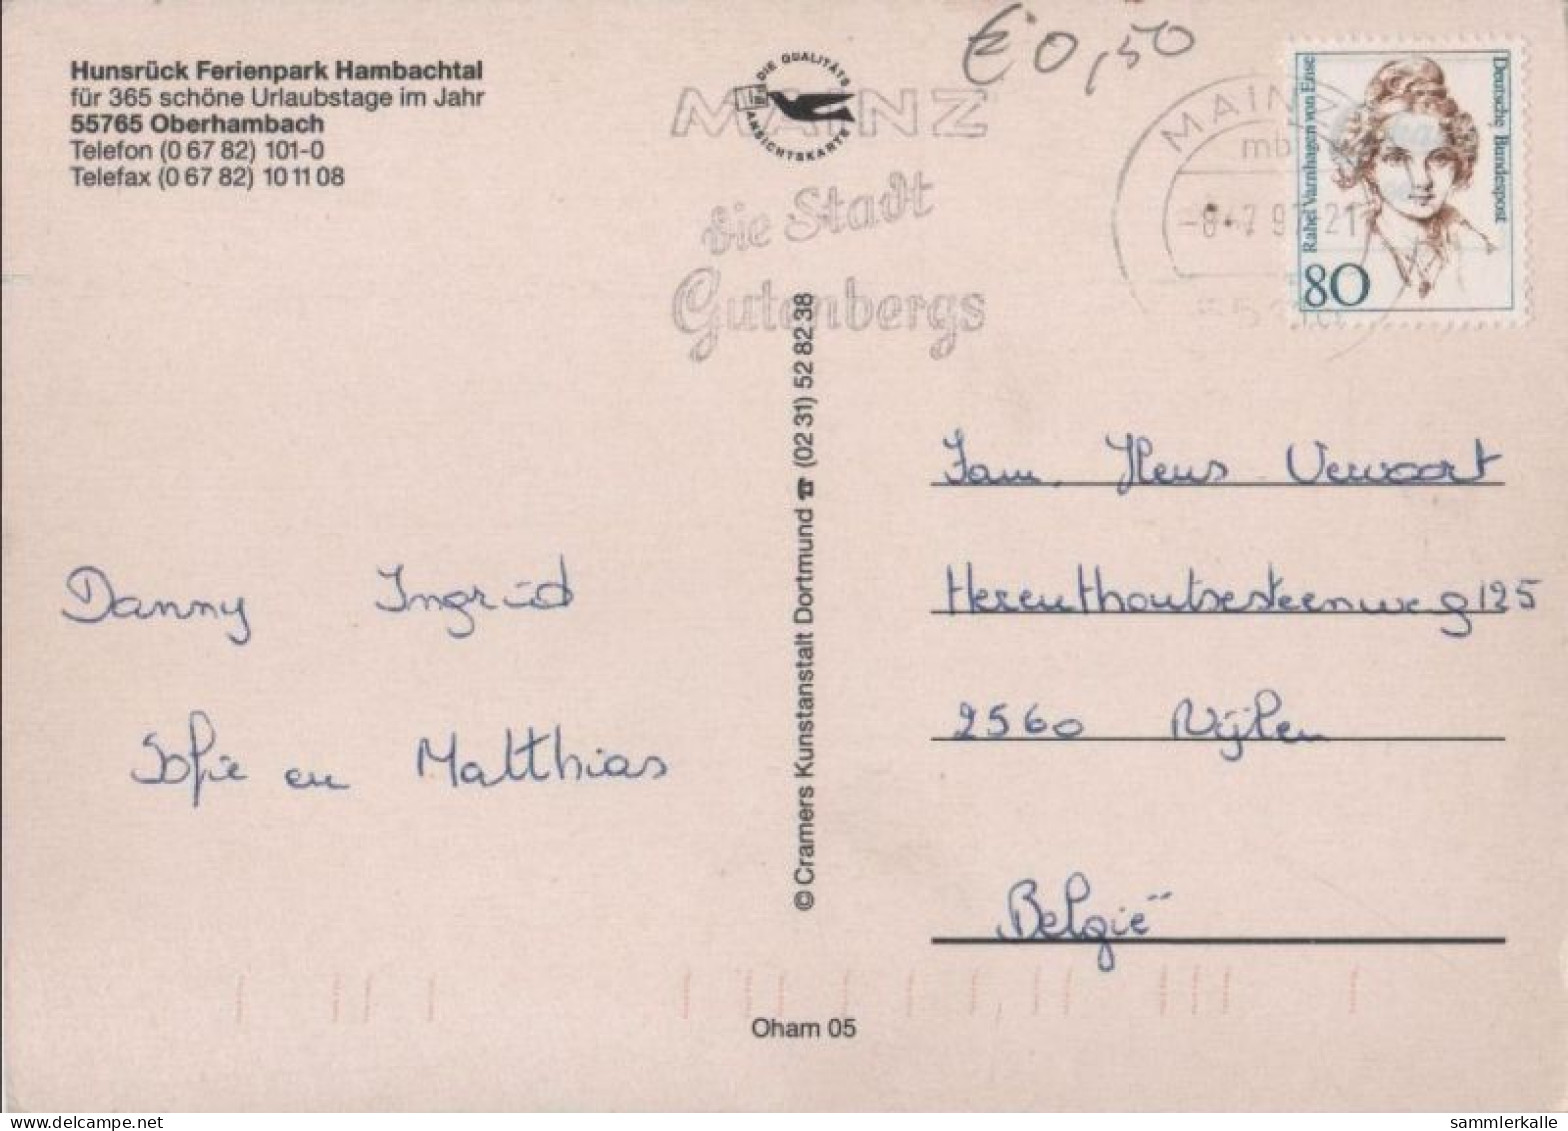 Hunsrück Ferienpark Hambachtal
für 365 schöne Urlaubstage im Jahr
55765 Oberhambach
Telefon (0 67 82) 101-0
Telefax (0 67 82) 10 11 08
DIE QUALITÄTS
ANSICHTSKARTE
MAINZ
die Stadt
Gutenbergs
€ 0,50
MAINZ
mb
Deutsche Bundespost
Rahel Varnhagen von Ense
80
© Cramers Kunstanstalt Dortmund ☎ (02 31) 52 82 38
Danny Ingrid
Sofie en Matthias
Fam. Heus Vervoort
Herenthoutsesteenweg 125
2560 Nijlen
België
Oham 05
sammlerkalle
delcampe.net